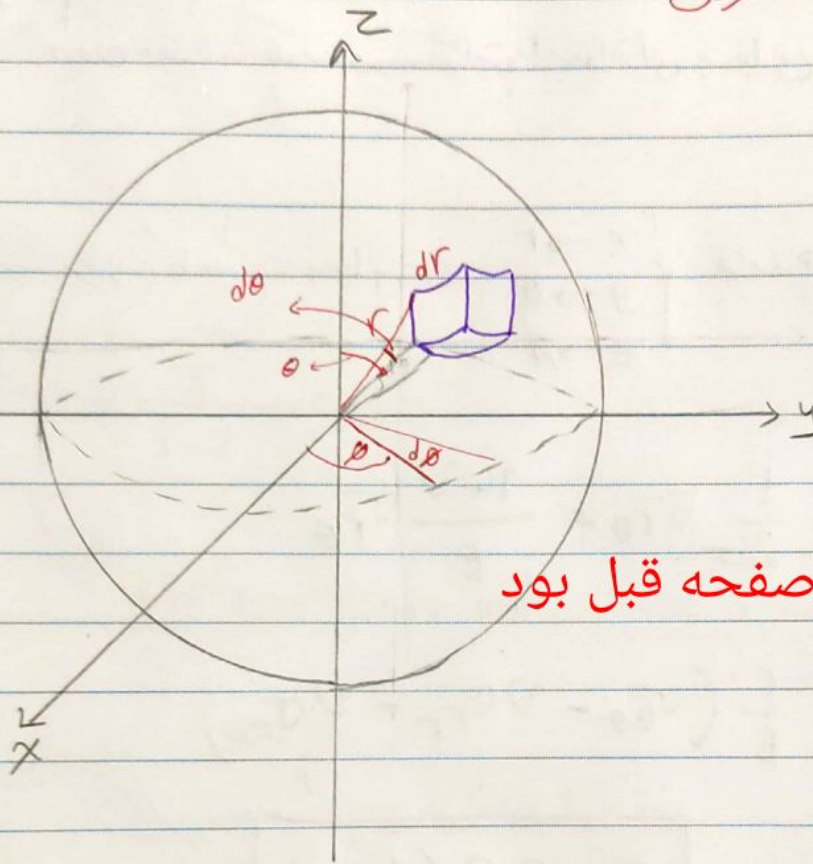 z
dr
dθ
r
θ
y
ø
dø
صفحه قبل بود
x